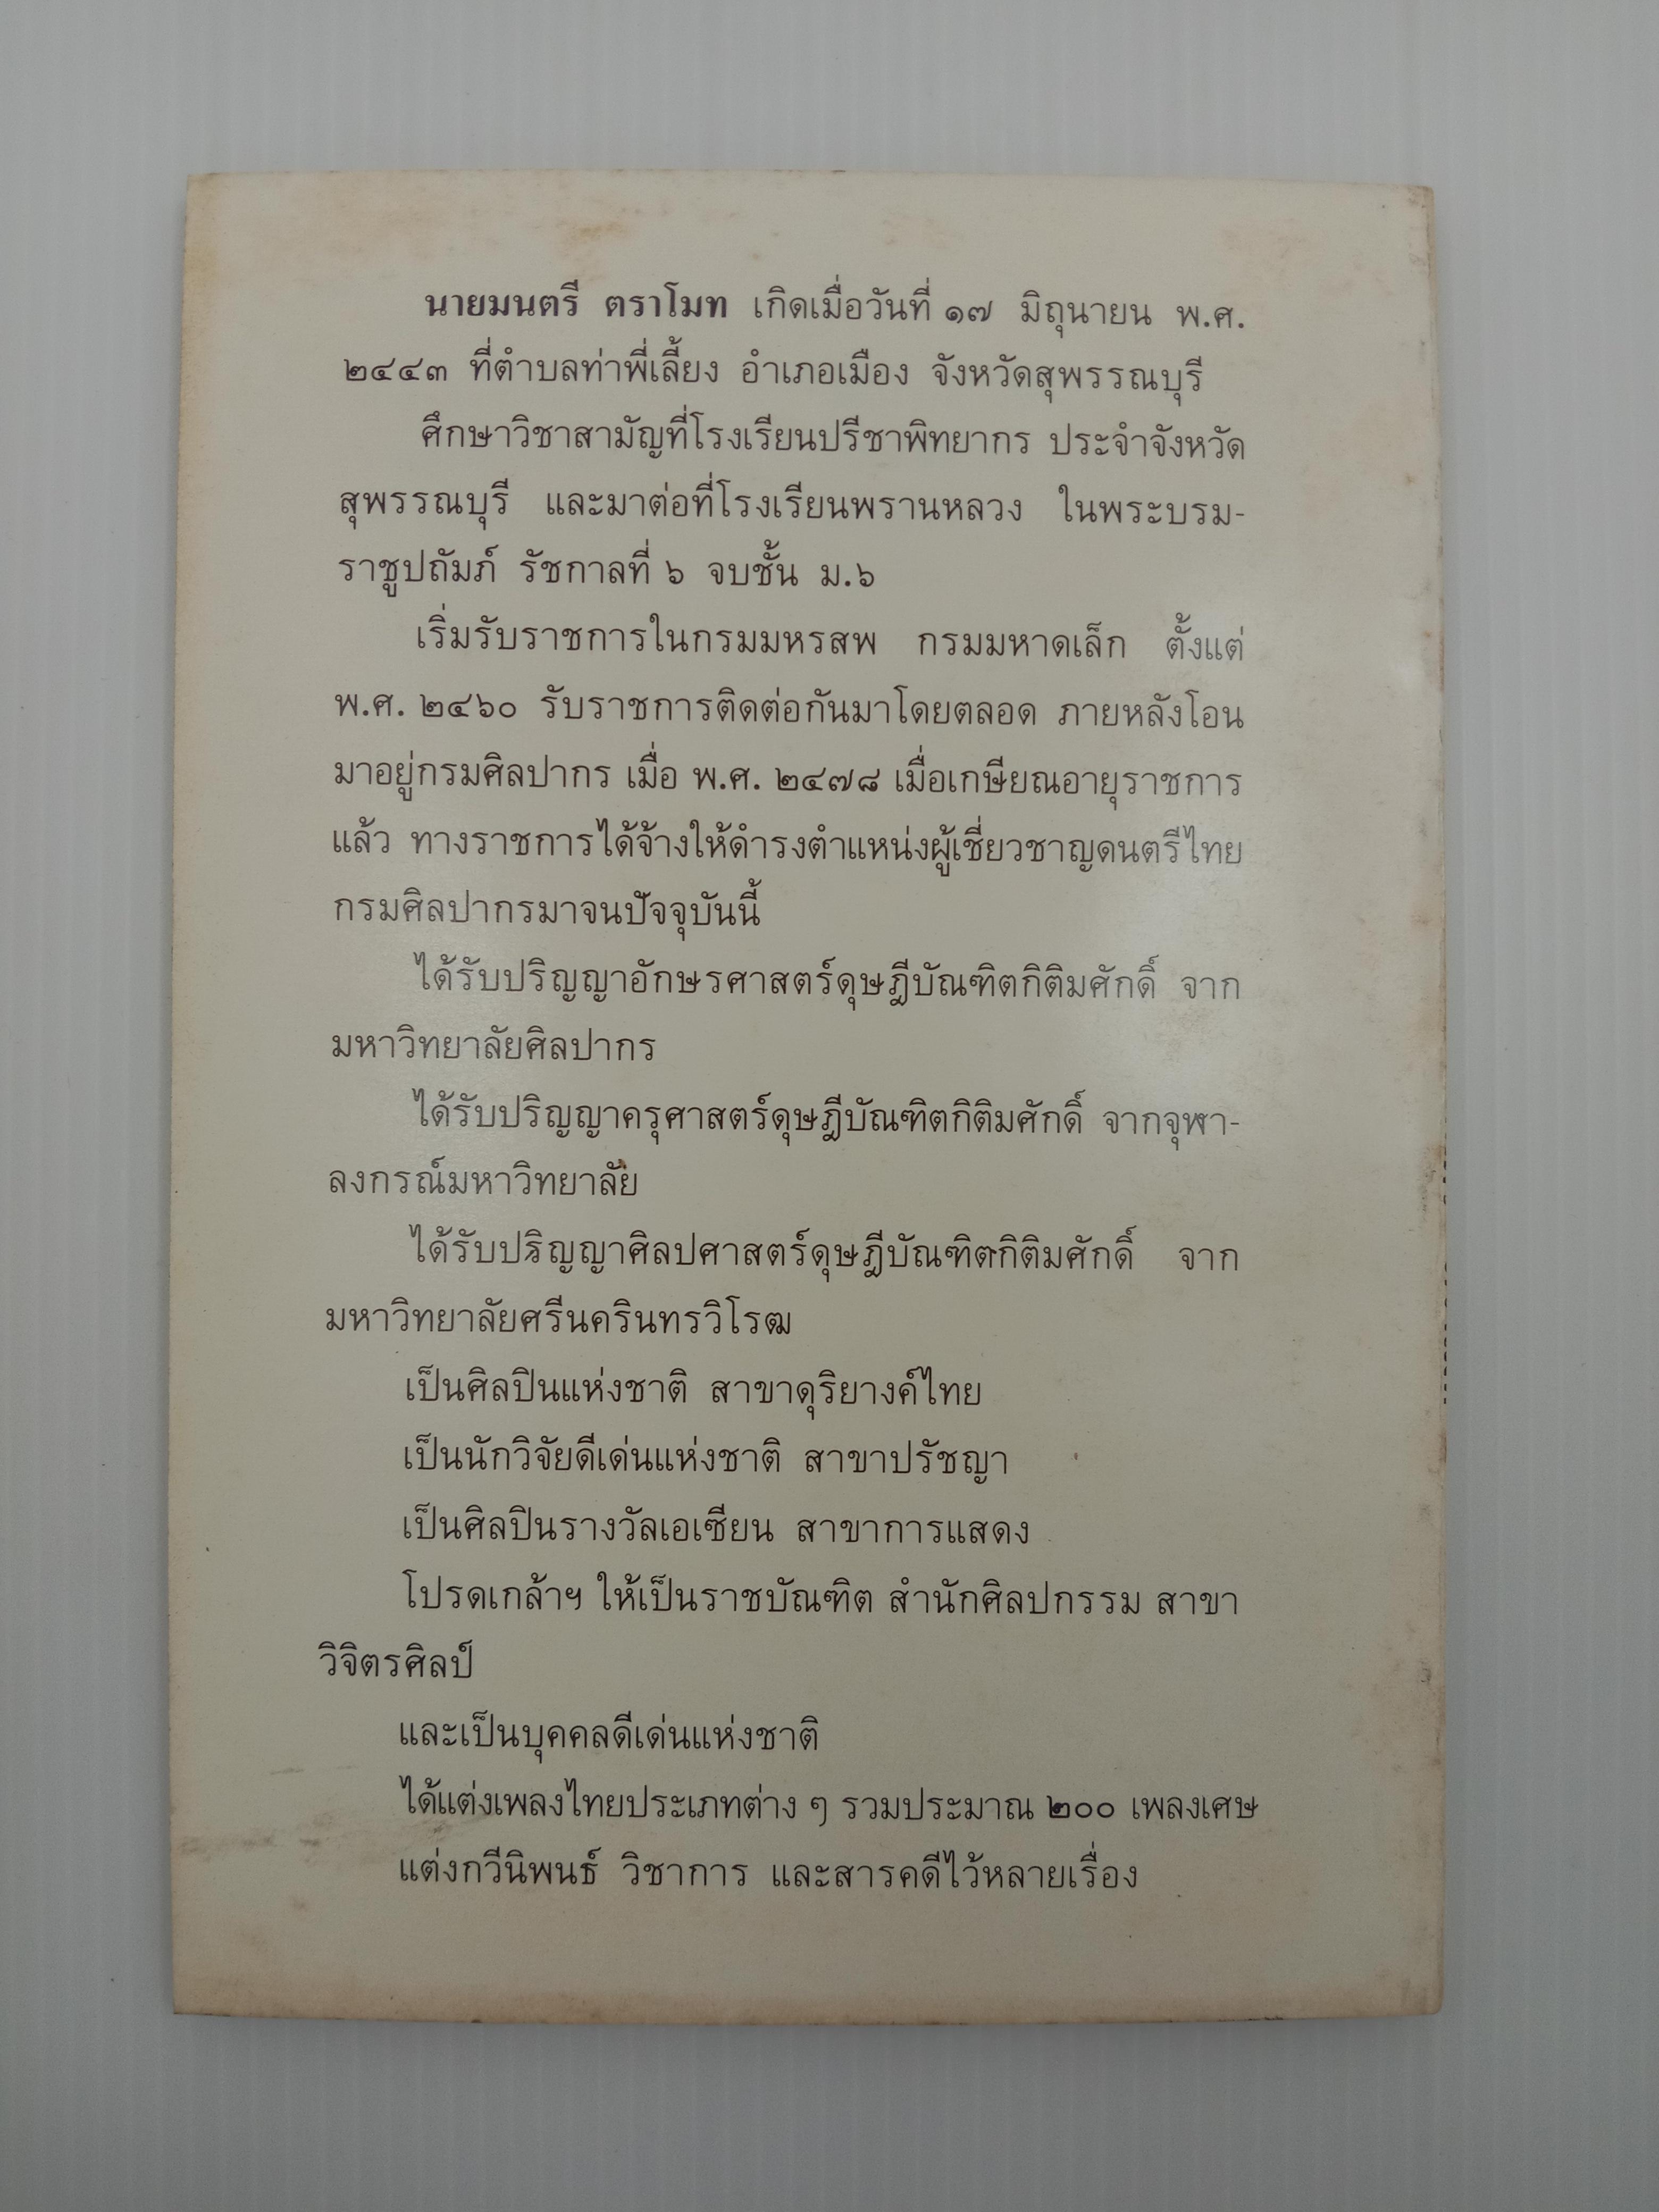 นายมนตรี ตราโมท เกิดเมื่อวันที่ ๑๗ มิถุนายน พ.ศ.
๒๔๔๓ ที่ตำบลท่าพี่เลี้ยง อำเภอเมือง จังหวัดสุพรรณบุรี
ศึกษาวิชาสามัญที่โรงเรียนปรีชาพิทยากร ประจำจังหวัด
สุพรรณบุรี และมาต่อที่โรงเรียนพรานหลวง ในพระบรม-
ราชูปถัมภ์ รัชกาลที่ ๖ จบชั้น ม.๖
เริ่มรับราชการในกรมมหรสพ กรมมหาดเล็ก ตั้งแต่
พ.ศ. ๒๔๖๐ รับราชการติดต่อกันมาโดยตลอด ภายหลังโอน
มาอยู่กรมศิลปากร เมื่อ พ.ศ. ๒๔๗๘ เมื่อเกษียณอายุราชการ
แล้ว ทางราชการได้จ้างให้ดำรงตำแหน่งผู้เชี่ยวชาญดนตรีไทย
กรมศิลปากรมาจนปัจจุบันนี้
ได้รับปริญญาอักษรศาสตร์ดุษฎีบัณฑิตกิติมศักดิ์ จาก
มหาวิทยาลัยศิลปากร
ได้รับปริญญาครุศาสตร์ดุษฎีบัณฑิตกิติมศักดิ์ จากจุฬา-
ลงกรณ์มหาวิทยาลัย
ได้รับปริญญาศิลปศาสตร์ดุษฎีบัณฑิตกิติมศักดิ์ จาก
มหาวิทยาลัยศรีนครินทรวิโรฒ
เป็นศิลปินแห่งชาติ สาขาดุริยางค์ไทย
เป็นนักวิจัยดีเด่นแห่งชาติ สาขาปรัชญา
เป็นศิลปินรางวัลเอเซียน สาขาการแสดง
โปรดเกล้าฯ ให้เป็นราชบัณฑิต สำนักศิลปกรรม สาขา
วิจิตรศิลป์
และเป็นบุคคลดีเด่นแห่งชาติ
ได้แต่งเพลงไทยประเภทต่าง ๆ รวมประมาณ ๒๐๐ เพลงเศษ
แต่งกวีนิพนธ์ วิชาการ และสารคดีไว้หลายเรื่อง